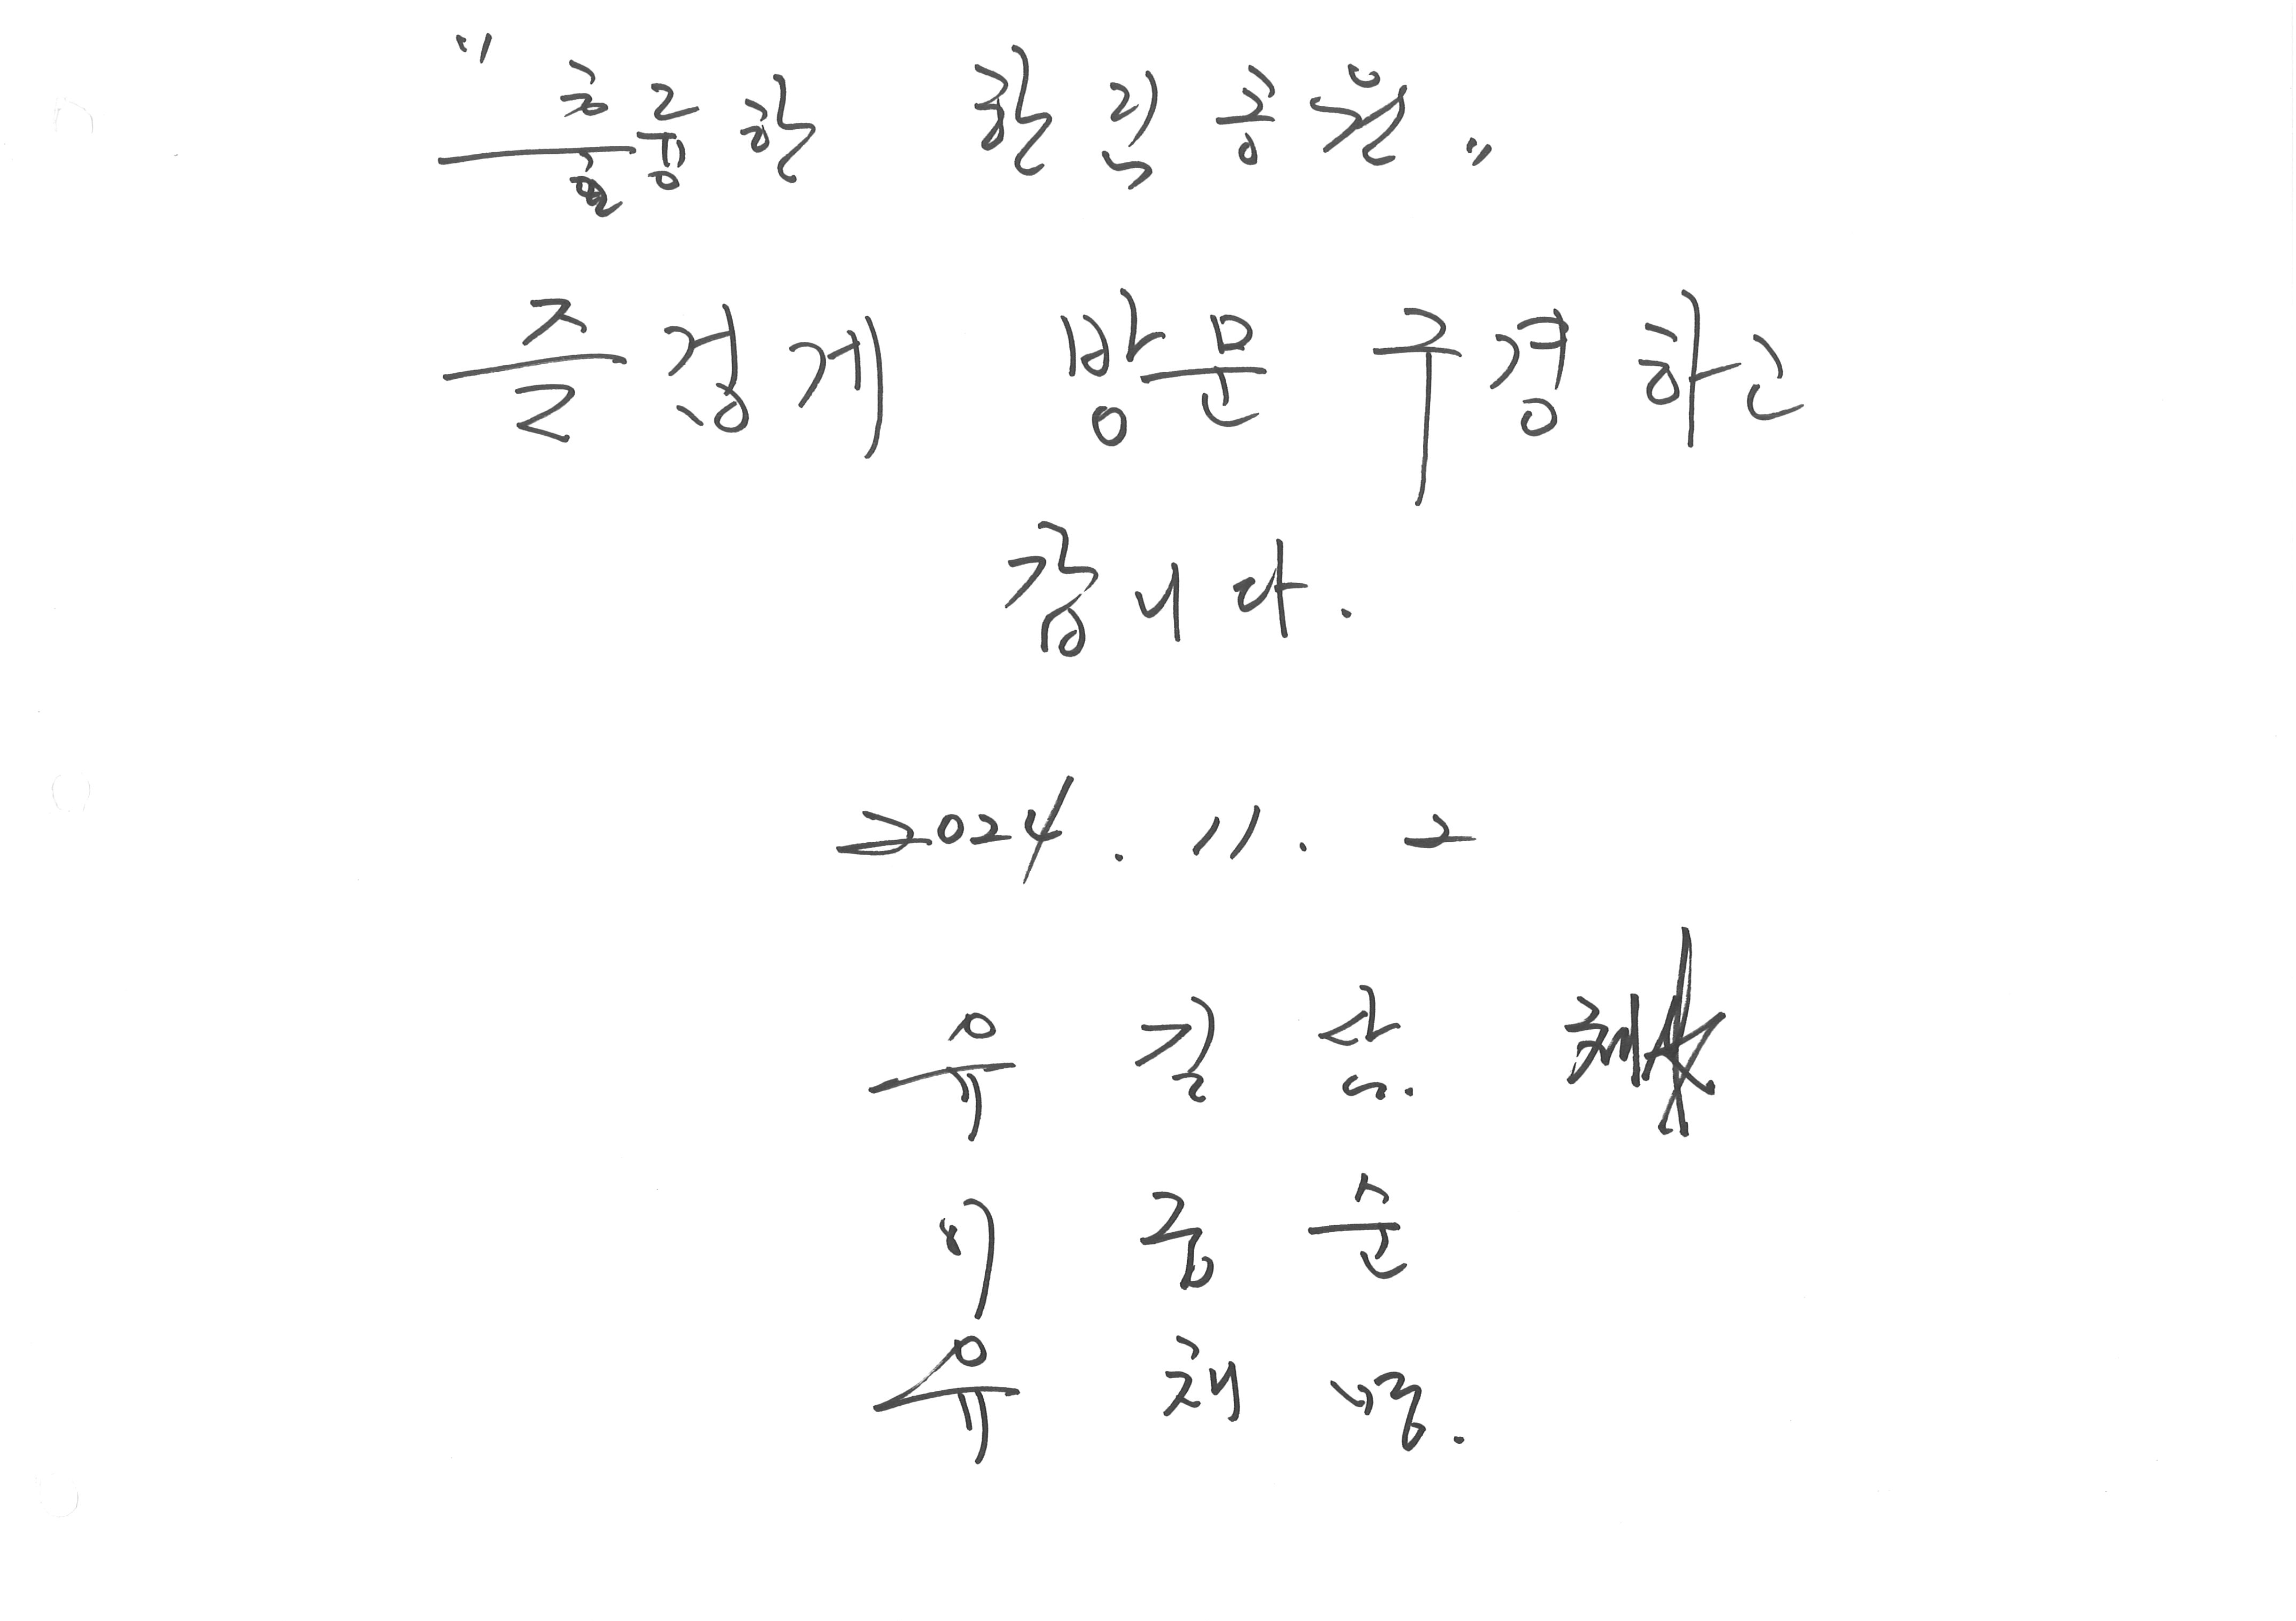 "훌륭한 한림공원"
즐겁게 방문 구경하고
갑니다.
2024. 11. 2
유 길 산
이 종 순
유 채 영.